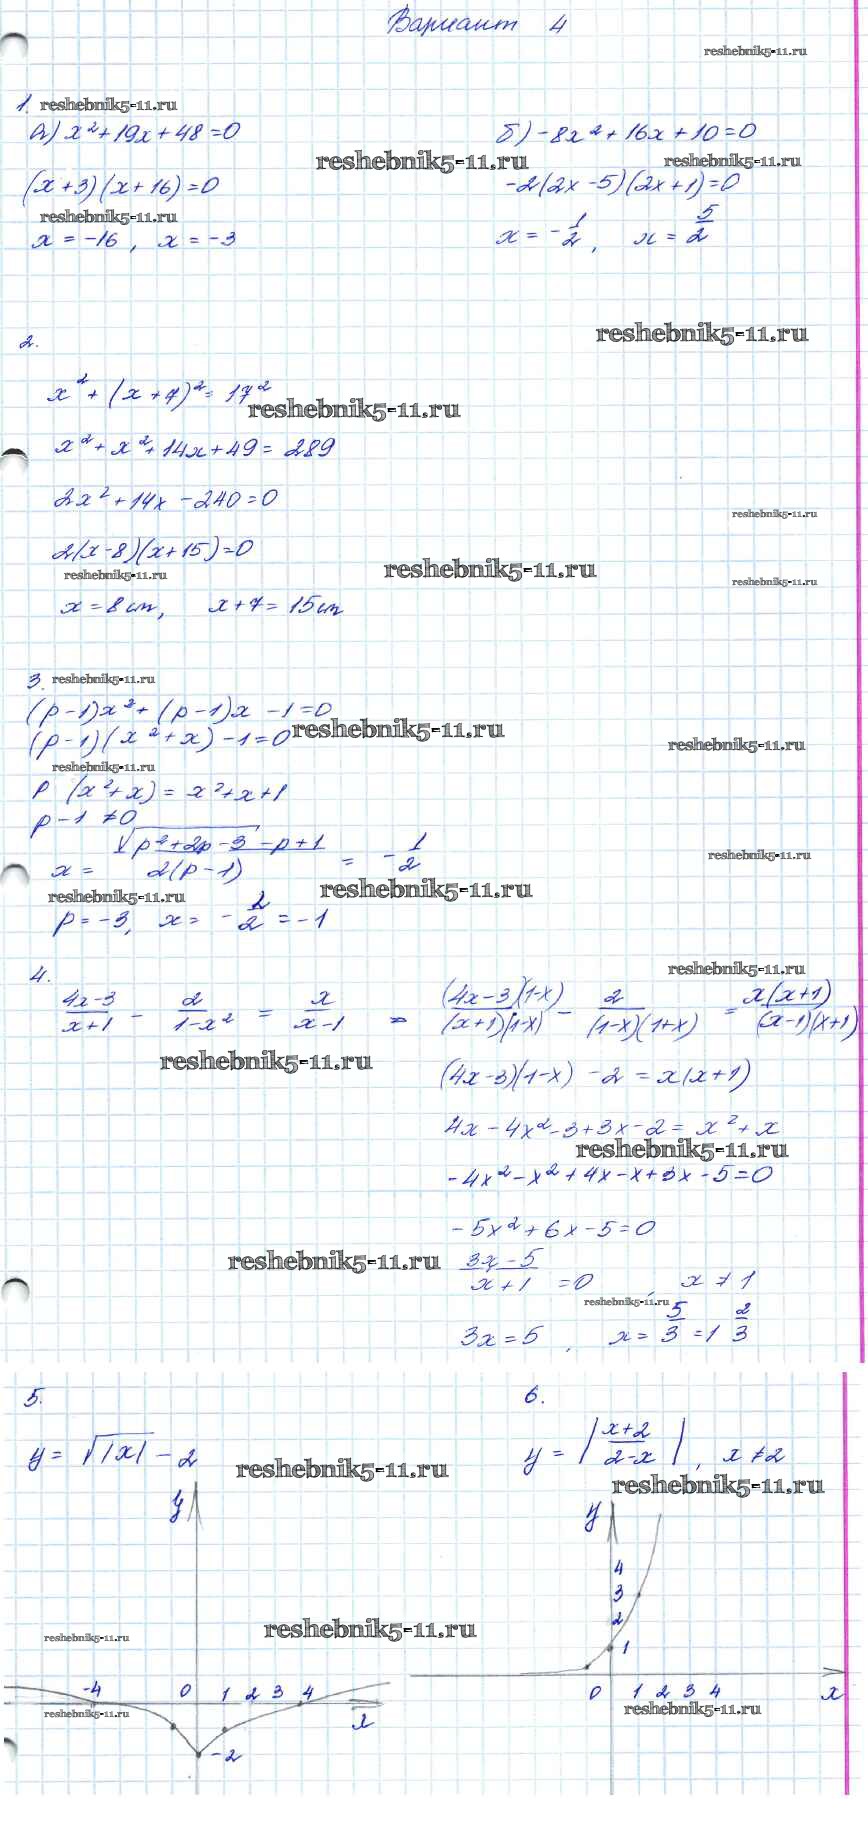 Вариант 4
reshebnik5-11.ru
1. reshebnik5-11.ru
а) x² + 19x + 48 = 0
б) -8x² + 16x + 10 = 0
reshebnik5-11.ru
reshebnik5-11.ru
(x + 3)(x + 16) = 0
-2(2x - 5)(2x + 1) = 0
reshebnik5-11.ru
x = -16, x = -3
x = -1/2, x = 5/2
2.
reshebnik5-11.ru
x² + (x + 7)² = 17²
reshebnik5-11.ru
x² + x² + 14x + 49 = 289
2x² + 14x - 240 = 0
reshebnik5-11.ru
2(x - 8)(x + 15) = 0
reshebnik5-11.ru
reshebnik5-11.ru
reshebnik5-11.ru
x = 8 см, x + 7 = 15 см
3. reshebnik5-11.ru
(p - 1)x² + (p - 1)x - 1 = 0
(p - 1)(x² + x) - 1 = 0
reshebnik5-11.ru
reshebnik5-11.ru
reshebnik5-11.ru
p (x² + x) = x² + x + 1
p - 1 ≠ 0
x = (√(p² + 2p - 3) - p + 1)/(2(p - 1)) = -1/2
reshebnik5-11.ru
reshebnik5-11.ru
reshebnik5-11.ru
p = -3, x = -2/2 = -1
4.
reshebnik5-11.ru
(4x-3)/(x+1) - 2/(1-x²) = x/(x-1) = (4x-3)(1-x)/((x+1)(1-x)) - 2/((1-x)(1+x)) = x(x+1)/((x-1)(x+1))
reshebnik5-11.ru
(4x-3)(1-x) - 2 = x(x+1)
4x - 4x² - 3 + 3x - 2 = x² + x
reshebnik5-11.ru
-4x² - x² + 4x - x + 3x - 5 = 0
-5x² + 6x - 5 = 0
reshebnik5-11.ru
(3x - 5)/(x + 1) = 0, x ≠ 1
reshebnik5-11.ru
3x = 5, x = 5/3 = 1 2/3
5.
6.
y = √|x| - 2
y = |(x+2)/(2-x)|, x ≠ 2
reshebnik5-11.ru
reshebnik5-11.ru
y
y
4
3
2
1
reshebnik5-11.ru
reshebnik5-11.ru
-4 0 1 2 3 4
x
0 1 2 3 4
x
reshebnik5-11.ru
reshebnik5-11.ru
-2